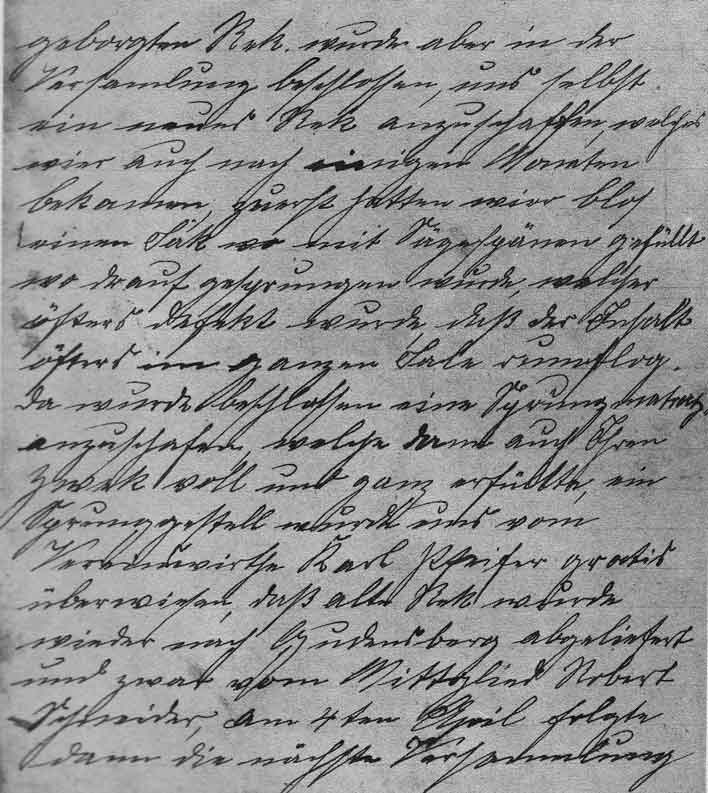 geborgten Rek. wurde aber in der
Versamlung beschlossen, uns selbst
ein neues Rek anzuschaffen, welches
wier auch nach einigen Monaten
bekamen, zuerst hatten wier blos
einen Sak wo mit Sägespänen gefüllt
wo drauf gesprungen wurde, welcher
öfters defekt wurde, daß der Inhalt
öfters im ganzen Sale rumflog.
da wurde beschlossen eine Sprungmatratz.
anzuschafen, welche dann auch Ihren
Zwek voll und ganz erfüllte, ein
Sprunggestell wurde uns vom
Vereinswirthe Karl Pfeifer gratis
überwiesen, daß alte Rek wurde
wieder nach Gudensberg abgeliefert
und zwar vom Mittglied Robert
Schneider, am 4ten April folgte
dann die nächste Versammlung